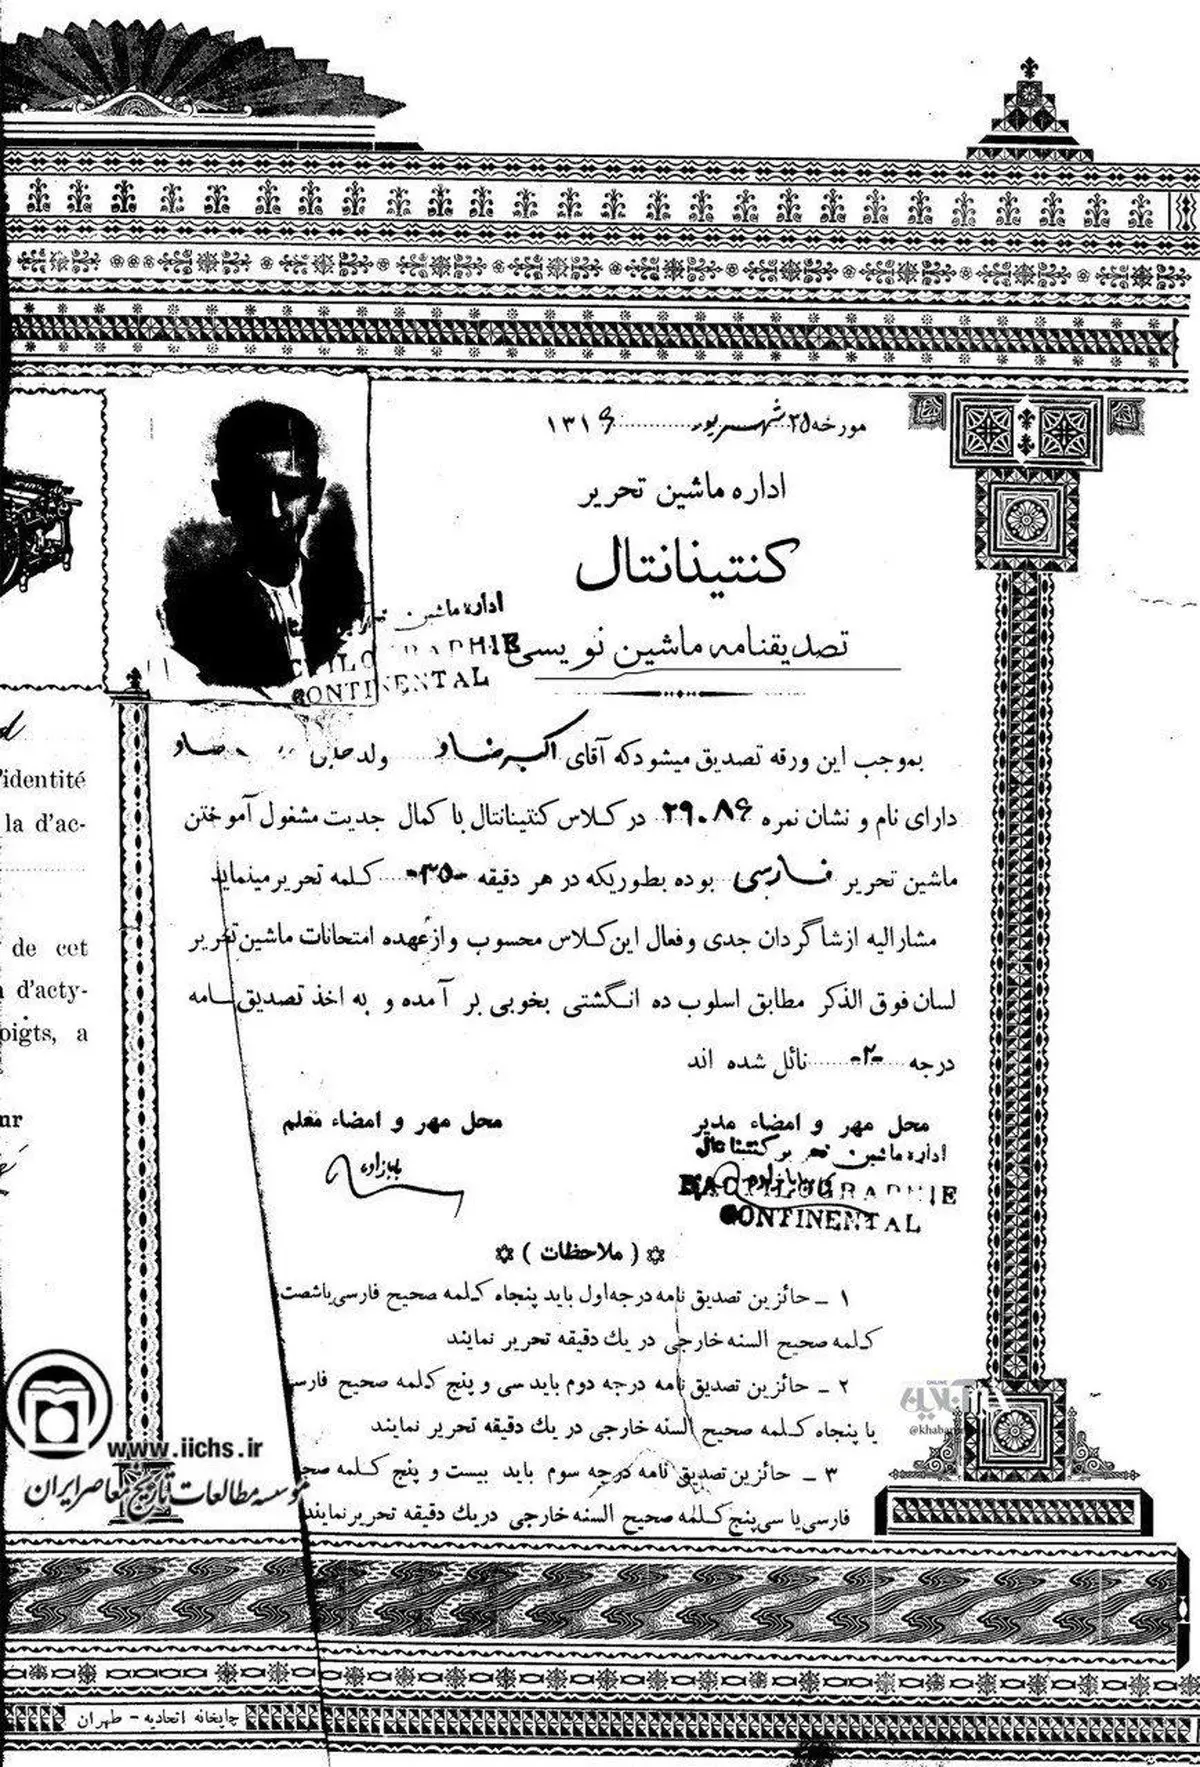 مورخه ۲۵ شهریور ۱۳۱۶
اداره ماشین تحریر
کنتینانتال
تصدیقنامه ماشین نویسی
اداره ماشین
CONTINENTAL
بموجب این ورقه تصدیق میشود که آقای اکبر ولد
دارای نام و نشان نمره ۲۹۰۸۶ در کلاس کنتینانتال با کمال جدیت مشغول آموختن
ماشین تحریر فارسی بوده بطوریکه در هر دقیقه -۳۵- کلمه تحریر مینماید
مشارالیه از شاگردان جدی و فعال این کلاس محسوب و از عهده امتحانات ماشین تحریر
لسان فوق الذکر مطابق اسلوب ده انگشتی بخوبی بر آمده و به اخذ تصدیق نامه
درجه -۲- نائل شده اند
محل مهر و امضاء مدیر
محل مهر و امضاء معلم
اداره ماشین تحریر کنتینانتال
بابازاده
DACTILOGRAPHIE
CONTINENTAL
( ملاحظات )
۱ ـ حائزین تصدیق نامه درجه اول باید پنجاه کلمه صحیح فارسی یا شصت
کلمه صحیح السنه خارجی در یك دقیقه تحریر نمایند
۲ ـ حائزین تصدیق نامه درجه دوم باید سی و پنج کلمه صحیح فارسی
یا پنجاه کلمه صحیح السنه خارجی در یك دقیقه تحریر نمایند
۳ ـ حائزین تصدیق نامه درجه سوم باید بیست و پنج کلمه صحیح
فارسی یا سی پنج کلمه صحیح السنه خارجی در یك دقیقه تحریر نمایند
d'identité
la d'ac-
de cet
d'acty-
doigts, a
www.iichs.ir
موسسه مطالعات تاریخ معاصر ایران
چاپخانه اتحادیه - طهران